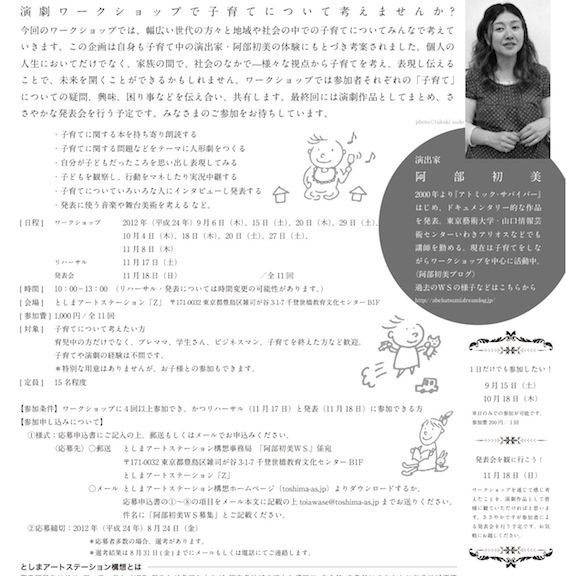 演劇ワークショップで子育てについて考えませんか？
今回のワークショップでは、幅広い世代の方々と地域や社会の中での子育てについてみんなで考えて
いきます。この企画は自身も子育て中の演出家・阿部初美の体験にもとづき考案されました。個人の
人生においてだけでなく、家族の間で、社会のなかで―様々な視点から子育てを考え、表現し伝える
ことで、未来を開くことができるかもしれません。ワークショップでは参加者それぞれの「子育て」
についての疑問、興味、困り事などを伝え合い、共有します。最終回には演劇作品としてまとめ、さ
さやかな発表会を行う予定です。みなさまのご参加をお待ちしています。
・子育てに関する本を持ち寄り朗読する
・子育てに関する問題などをテーマに人形劇をつくる
・自分が子どもだったころを思い出し表現してみる
・子どもを観察し、行動をマネしたり実況中継する
・子育てについていろいろな人にインタビューし発表する
・発表に使う音楽や舞台美術を考える など。
[ 日程 ] ワークショップ 2012年（平成24年）9月6日（木）、15日（土）、20日（木）、29日（土）、
10月4日（木）、18日（木）、20日（土）、27日（土）、
11月8日（木）
リハーサル 11月17日（土）
発表会 11月18日（日） ／全11回
[ 時間 ] 10：00~13：00 （リハーサル・発表については時間変更の可能性があります。）
[ 会場 ] としまアートステーション「Z」 〒171-0032 東京都豊島区雑司が谷3-1-7 千登世橋教育文化センター B1F
[ 参加費 ] 1,000円／全11回
[ 対象 ] 子育てについて考えたい方
育児中の方だけでなく、プレママ、学生さん、ビジネスマン、子育てを終えた方など歓迎。
子育てや演劇の経験は不問です。
＊特別な用意はありませんが、お子様との参加もできます。
[ 定員 ] 15名程度
【参加条件】ワークショップに4回以上参加でき、かつリハーサル（11月17日）と発表（11月18日）に参加できる方
【参加申し込みについて】
①様式：応募申込書にご記入の上、郵送もしくはメールでお申込みください。
（応募先）○郵送 としまアートステーション構想事務局 「阿部初美WS」係宛
〒171-0032 東京都豊島区雑司が谷3-1-7 千登世橋教育文化センター B1F
としまアートステーション「Z」
○メール としまアートステーション構想ホームページ（toshima-as.jp）よりダウンロードするか、
応募申込書の①～⑧の項目をメール本文に記載の上 toiawase@toshima-as.jp までお送りください。
件名に「阿部初美WS募集」とご記載ください。
②応募締切：2012年（平成24年）8月24日（金）
＊応募者多数の場合、選考があります。
＊選考結果は8月31日(金)までにメールもしくは電話にてご連絡します。
としまアートステーション構想とは
演出家
阿部初美
2000年より『アトミック・サバイバー』
はじめ、ドキュメンタリー的な作品
を発表。東京藝術大学・山口情報芸
術センター・いわきアリオスなどでも
講師を勤める。現在は子育てをしなが
らワークショップを中心に活動中。
（阿部初美ブログ）
過去のWSの様子などはこちらから
1日だけでも参加したい！
9月15日（土）
10月18日（木）
単日のみでの参加が可能です。
参加費200円／1回
発表会を観に行こう！
11月18日（日）
ワークショップを通じて感じ考
えたことを、演劇作品として皆
様に観ていただければと思いま
す。ささやかですが参加者によ
る発表会を行う予定です。お気
軽にお越しください。